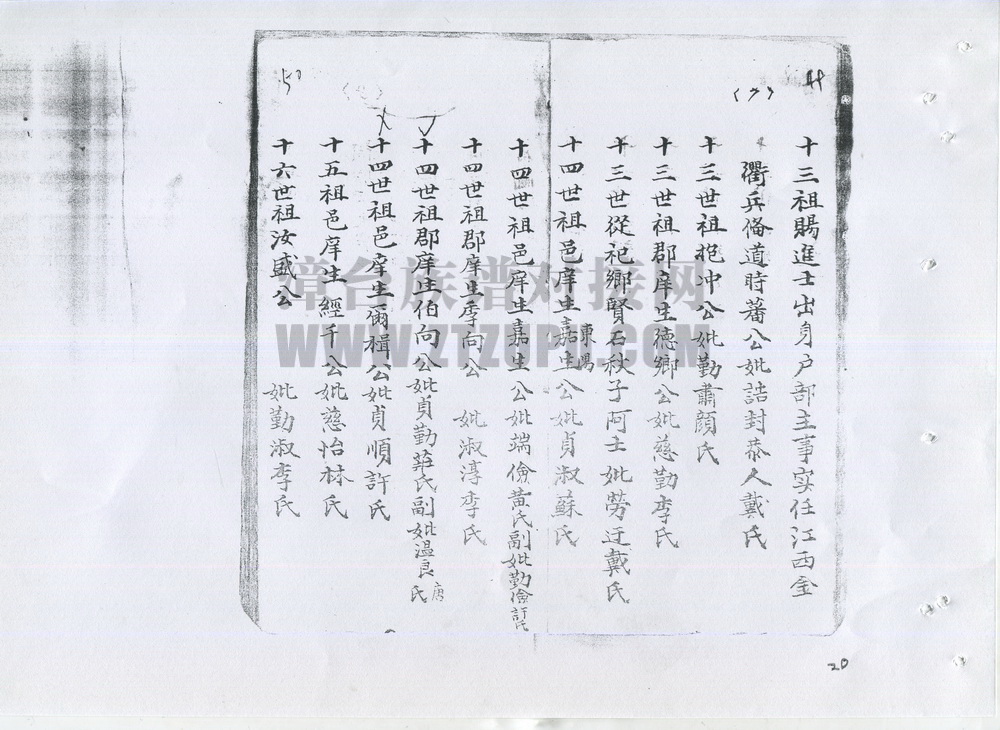 十三祖賜進士出身户部主事实任江西金
衢兵俻道時蕃公妣誥封恭人戴氏
十三世祖抱冲公妣勤肅顔氏
十三世祖郡庠生德鄉公妣慈勤李氏
十三世從祀鄉賢石秋子阿士 妣勞迂戴氏
十四世祖邑庠生嘉生公妣貞淑蘇氏
東陽
十四世祖邑庠生嘉生公妣端儉黄氏副妣勤儉許氏
十四世祖郡庠生季向公 妣淑淳李氏
十四世祖郡庠生伯向公妣貞勤莊氏副妣温良唐氏
十四世祖邑庠生爾楫公妣貞順許氏
十五祖邑庠生經千公妣慈怡林氏
十六世祖汝盛公 妣勤淑李氏
漳台族谱对接网
WWW.ZTZUPU.COM
20